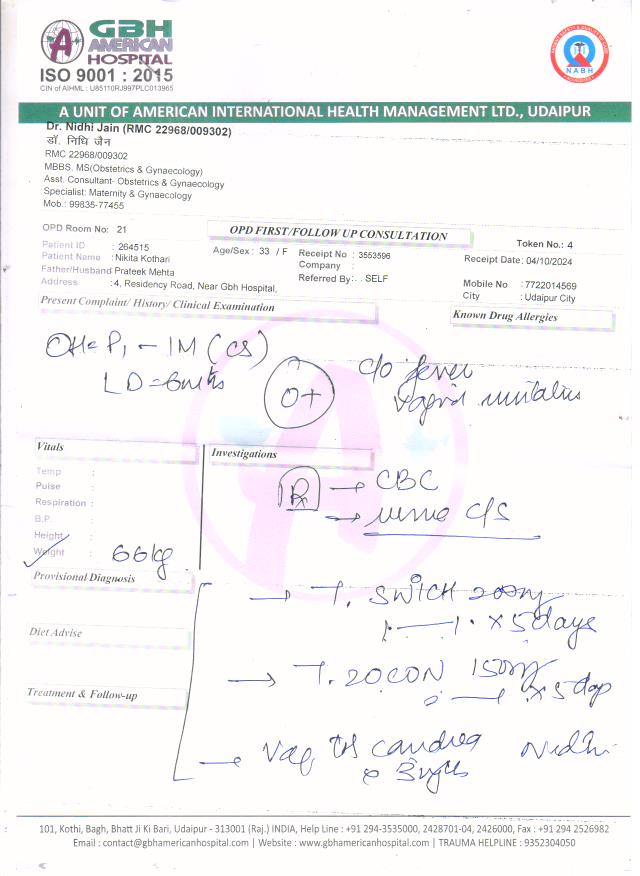 GBH
AMERICAN
HOSPITAL
ISO 9001 : 2015
CIN of AIHML : U85110RJ997PLC013965
NABH
A UNIT OF AMERICAN INTERNATIONAL HEALTH MANAGEMENT LTD., UDAIPUR
Dr. Nidhi Jain (RMC 22968/009302)
डॉ. निधि जैन
RMC 22968/009302
MBBS, MS(Obstetrics & Gynaecology)
Asst. Consultant- Obstetrics & Gynaecology
Specialist: Maternity & Gynaecology
Mob.: 99835-77455
OPD Room No: 21
OPD FIRST/FOLLOW UP CONSULTATION
Token No.: 4
Patient ID : 264515
Age/Sex : 33 / F
Receipt No : 3553596
Receipt Date: 04/10/2024
Patient Name : Nikita Kothari
Company :
Father/Husband Prateek Mehta
Referred By: . . SELF
Mobile No : 7722014569
Address : 4, Residency Road, Near Gbh Hospital,
City : Udaipur City
Present Complaint/ History/ Clinical Examination
Known Drug Allergies
OH= P1 – 1M (CS)
LD = 6
O+
c/o fever
Vitals
Investigations
Temp :
Pulse :
Respiration :
B.P. :
Height :
Weight : 66kg
Rx → CBC
→ urine c/s
Provisional Diagnosis
Diet Advise
Treatment & Follow-up
→ T. SWICH 200mg
1 — 1 x 5 days
→ T. ZOCON 150mg
x 5
→ Vag candid
Nidhi
x 3
101, Kothi, Bagh, Bhatt Ji Ki Bari, Udaipur - 313001 (Raj.) INDIA, Help Line : +91 294-3535000, 2428701-04, 2426000, Fax : +91 294 2526982
Email : contact@gbhamericanhospital.com | Website : www.gbhamericanhospital.com | TRAUMA HELPLINE : 9352304050